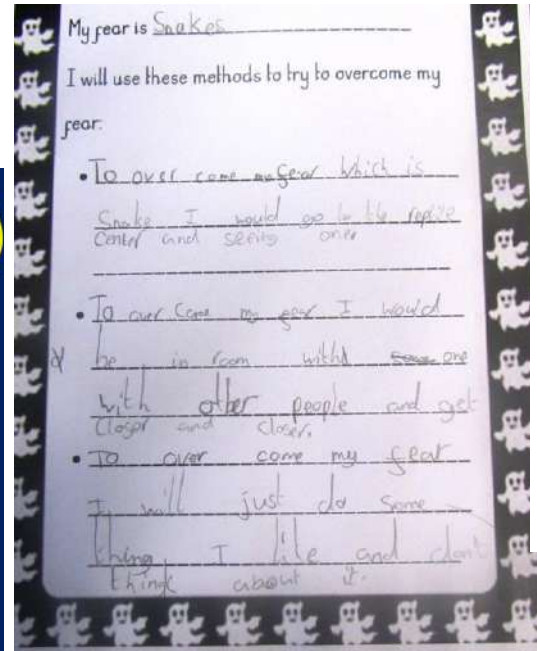 My fear is Snakes
I will use these methods to try to overcome my
fear:
• To over come my fear which is
Snake I would go to the
Center and seeing one
• To over Come my fear I would
be in room with one
with other people and get
Closer and closer.
• To over come my fear
I will just do some
thing I like and dont
think about it.